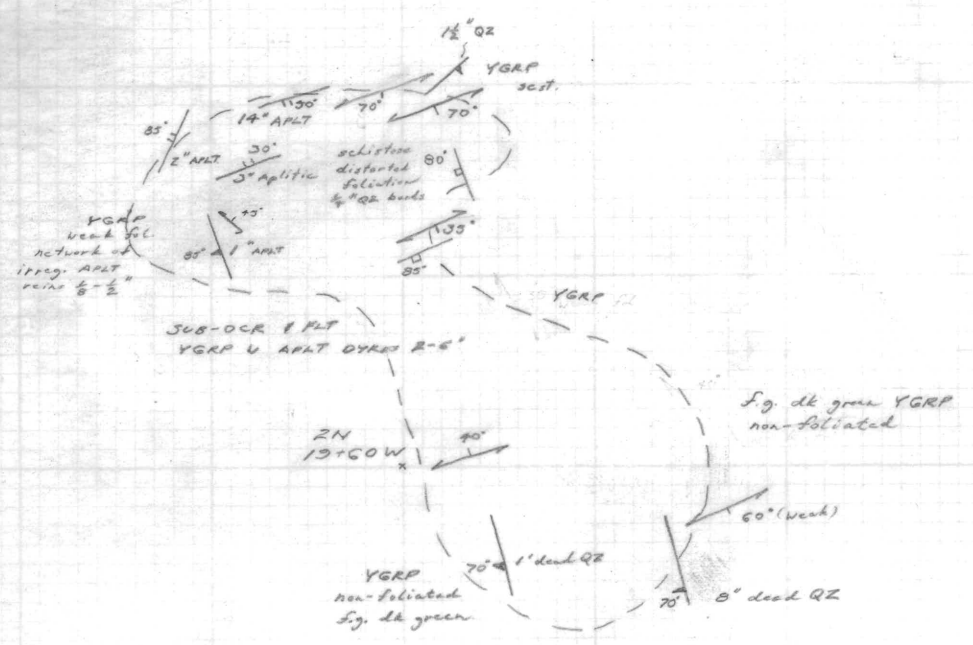 1½" QZ
YGRP
scst.
30°
70°
70°
14" APLT
85°
2" APLT
30°
3" Aplitic
schistose
distorted
foliation
¾" QZ bads
80°
YGRP
weak fol.
network of
irreg. APLT
veins ⅛-½"
45°
85° 1" APLT
35°
85°
YGRP
SUB-OCR & FLT
YGRP W APLT DYKES 2-6"
f.g. dk green YGRP
non-foliated
2N
19+60W
x
40°
60° (weak)
70° 1' dead QZ
YGRP
non-foliated
f.g. dk green
70° 8" dead QZ